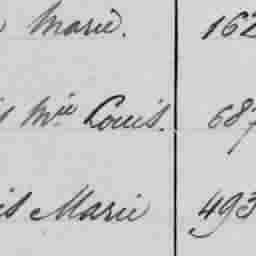 Marie. 162
Mie Louis. 687
is Marie 493